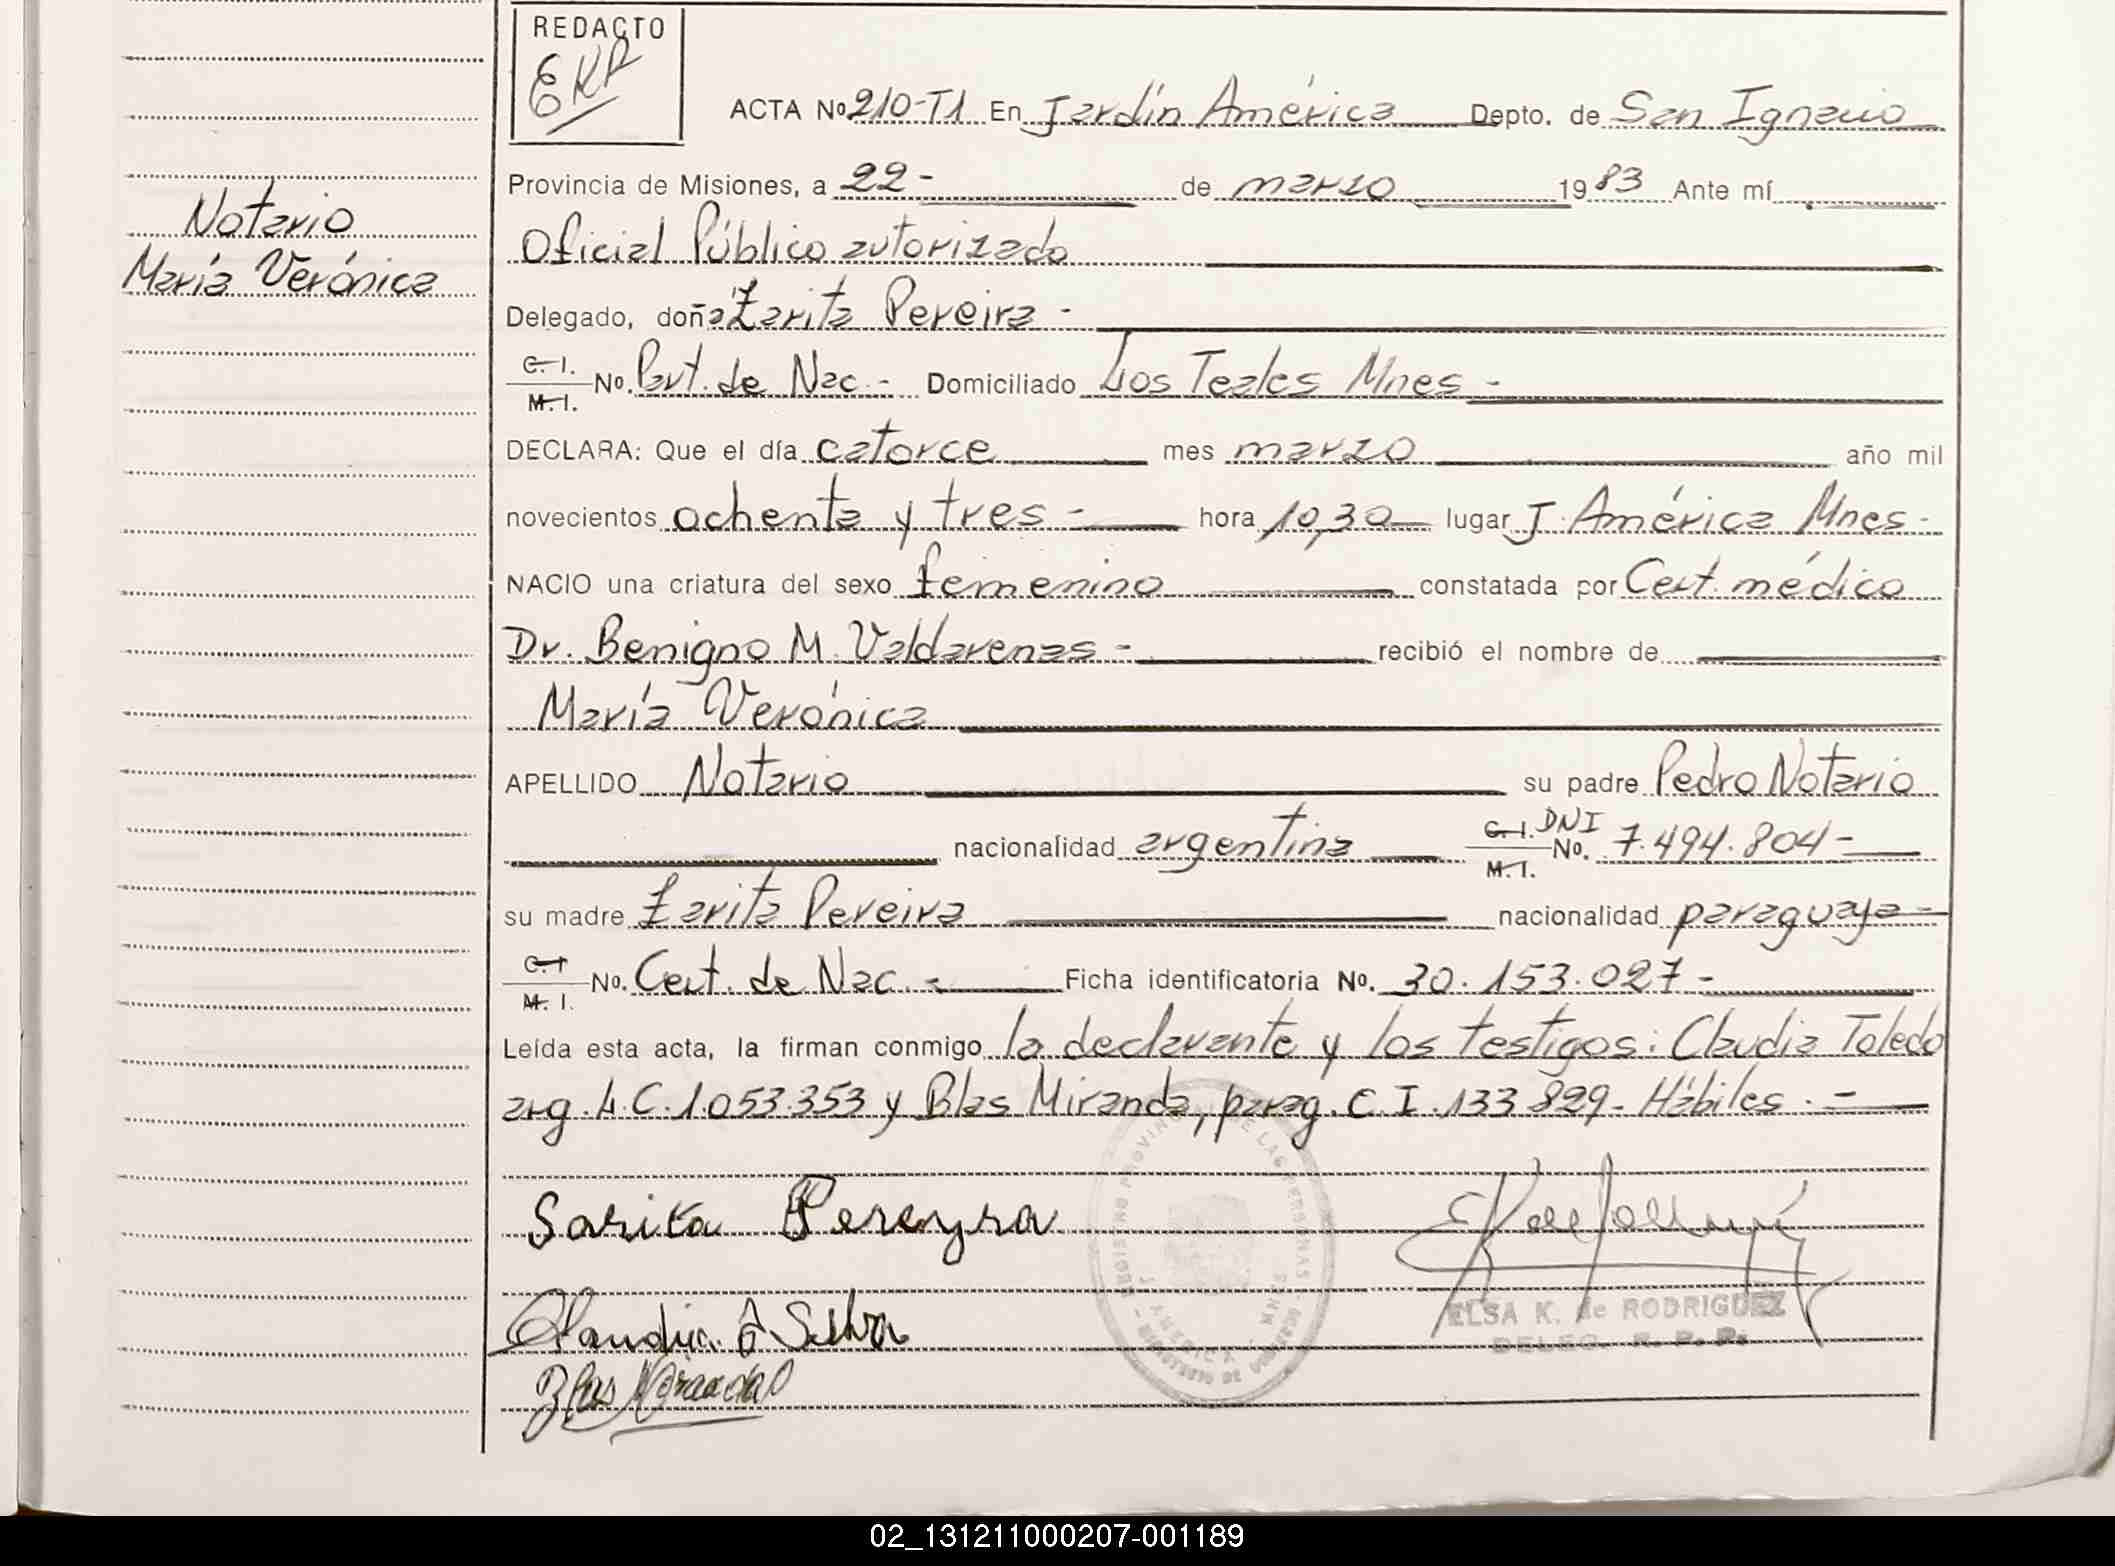 REDACTO
EKR
ACTA Nº 210-T1 En Jardín América Depto. de San Ignacio
Provincia de Misiones, a 22- de marzo 1983 Ante mí
Notario
María Verónica
Oficial Público autorizado
Delegado, doña Zarita Pereira -
C. I. M. I. No. Part. de Nac. - Domiciliado Los Teales Mnes -
DECLARA: Que el día catorce mes marzo año mil
novecientos ochenta y tres - hora 10,30 lugar J. América Mnes -
NACIO una criatura del sexo femenino constatada por Cert. médico
Dr. Benigno M. Valdarenas - recibió el nombre de
María Verónica
APELLIDO Notario su padre Pedro Notario
nacionalidad argentina C. I. M. I. DNI No. 7.494.804 -
su madre Zarita Pereira nacionalidad paraguaya -
C. I M. I. No. Cert. de Nac. - Ficha identificatoria No. 30.153.027 -
Leída esta acta, la firman conmigo la declarante y los testigos: Claudia Toledo
arg. L.C. 1.053.353 y Blas Miranda, parag. C.I. 133.829 - Hábiles. -
Sarita Pereyra
Claudia Silva
Blas Miranda
REGISTRO PROVINCIAL DE LAS PERSONAS - MINISTERIO DE GOBIERNO
J. AMERICA - MNES
ELSA K. de RODRIGUEZ
DELEG. R. P. P.
02_131211000207-001189